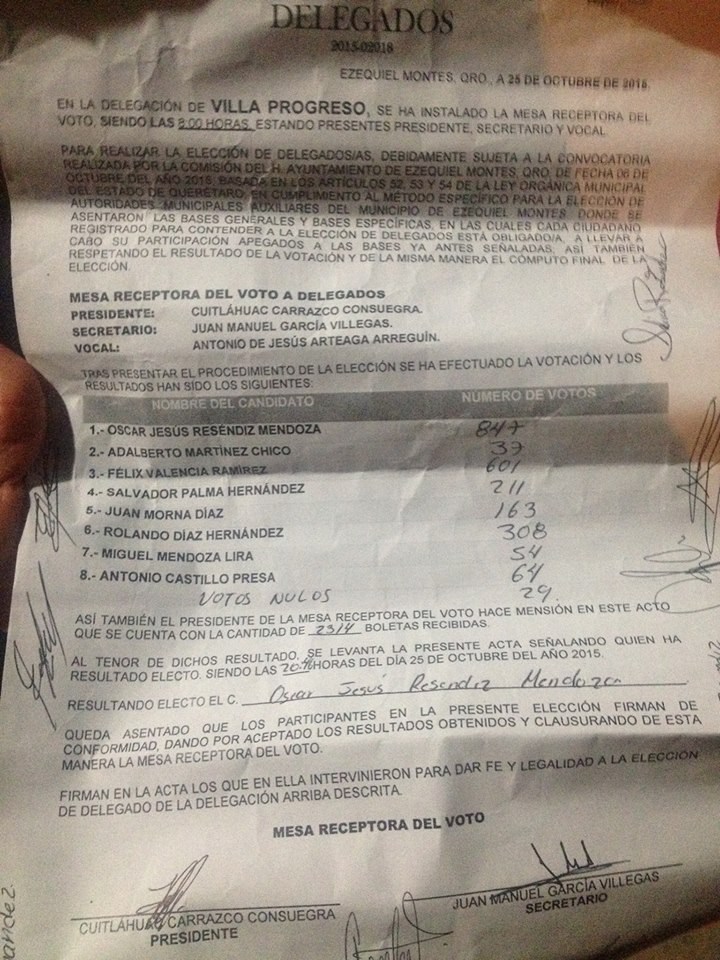 DELEGADOS
2015-02018
EZEQUIEL MONTES, QRO., A 25 DE OCTUBRE DE 2015.
EN LA DELEGACIÓN DE VILLA PROGRESO, SE HA INSTALADO LA MESA RECEPTORA DEL
VOTO, SIENDO LAS 8:00 HORAS, ESTANDO PRESENTES PRESIDENTE, SECRETARIO Y VOCAL
PARA REALIZAR LA ELECCIÓN DE DELEGADOS/AS, DEBIDAMENTE SUJETA A LA CONVOCATORIA
REALIZADA POR LA COMISIÓN DEL H. AYUNTAMIENTO DE EZEQUIEL MONTES, QRO. DE FECHA 06 DE
OCTUBRE DEL AÑO 2015, BASADA EN LOS ARTÍCULOS 52, 53 Y 54 DE LA LEY ORGÁNICA MUNICIPAL
DEL ESTADO DE QUERÉTARO, EN CUMPLIMIENTO AL MÉTODO ESPECÍFICO PARA LA ELECCIÓN DE
AUTORIDADES MUNICIPALES AUXILIARES DEL MUNICIPIO DE EZEQUIEL MONTES, DONDE SE
ASENTARON LAS BASES GENERALES Y BASES ESPECÍFICAS, EN LAS CUALES CADA CIUDADANO
REGISTRADO PARA CONTENDER A LA ELECCIÓN DE DELEGADOS ESTÁ OBLIGADO/A, A LLEVAR A
CABO SU PARTICIPACIÓN APEGADOS A LAS BASES YA ANTES SEÑALADAS, ASÍ TAMBIÉN
RESPETANDO EL RESULTADO DE LA VOTACIÓN Y DE LA MISMA MANERA EL CÓMPUTO FINAL DE LA
ELECCIÓN.
MESA RECEPTORA DEL VOTO A DELEGADOS
PRESIDENTE: CUITLÁHUAC CARRAZCO CONSUEGRA.
SECRETARIO: JUAN MANUEL GARCÍA VILLEGAS.
VOCAL: ANTONIO DE JESÚS ARTEAGA ARREGUÍN.
TRAS PRESENTAR EL PROCEDIMIENTO DE LA ELECCIÓN SE HA EFECTUADO LA VOTACIÓN Y LOS
RESULTADOS HAN SIDO LOS SIGUIENTES:
NOMBRE DEL CANDIDATO NÚMERO DE VOTOS
1.- OSCAR JESÚS RESÉNDIZ MENDOZA 847
2.- ADALBERTO MARTÍNEZ CHICO 37
3.- FÉLIX VALENCIA RAMÍREZ 601
4.- SALVADOR PALMA HERNÁNDEZ 211
5.- JUAN MORNA DÍAZ 163
6.- ROLANDO DÍAZ HERNÁNDEZ 308
7.- MIGUEL MENDOZA LIRA 54
8.- ANTONIO CASTILLO PRESA 64
VOTOS NULOS 29
ASÍ TAMBIÉN EL PRESIDENTE DE LA MESA RECEPTORA DEL VOTO HACE MENSIÓN EN ESTE ACTO
QUE SE CUENTA CON LA CANTIDAD DE 2314 BOLETAS RECIBIDAS.
AL TENOR DE DICHOS RESULTADO, SE LEVANTA LA PRESENTE ACTA SEÑALANDO QUIEN HA
RESULTADO ELECTO. SIENDO LAS HORAS DEL DÍA 25 DE OCTUBRE DEL AÑO 2015.
RESULTANDO ELECTO EL C. Oscar Jesús Resendiz Mendoza
QUEDA ASENTADO QUE LOS PARTICIPANTES EN LA PRESENTE ELECCIÓN FIRMAN DE
CONFORMIDAD, DANDO POR ACEPTADO LOS RESULTADOS OBTENIDOS Y CLAUSURANDO DE ESTA
MANERA LA MESA RECEPTORA DEL VOTO.
FIRMAN EN LA ACTA LOS QUE EN ELLA INTERVINIERON PARA DAR FE Y LEGALIDAD A LA ELECCIÓN
DE DELEGADO DE LA DELEGACIÓN ARRIBA DESCRITA.
MESA RECEPTORA DEL VOTO
CUITLÁHUAC CARRAZCO CONSUEGRA
PRESIDENTE
JUAN MANUEL GARCÍA VILLEGAS
SECRETARIO